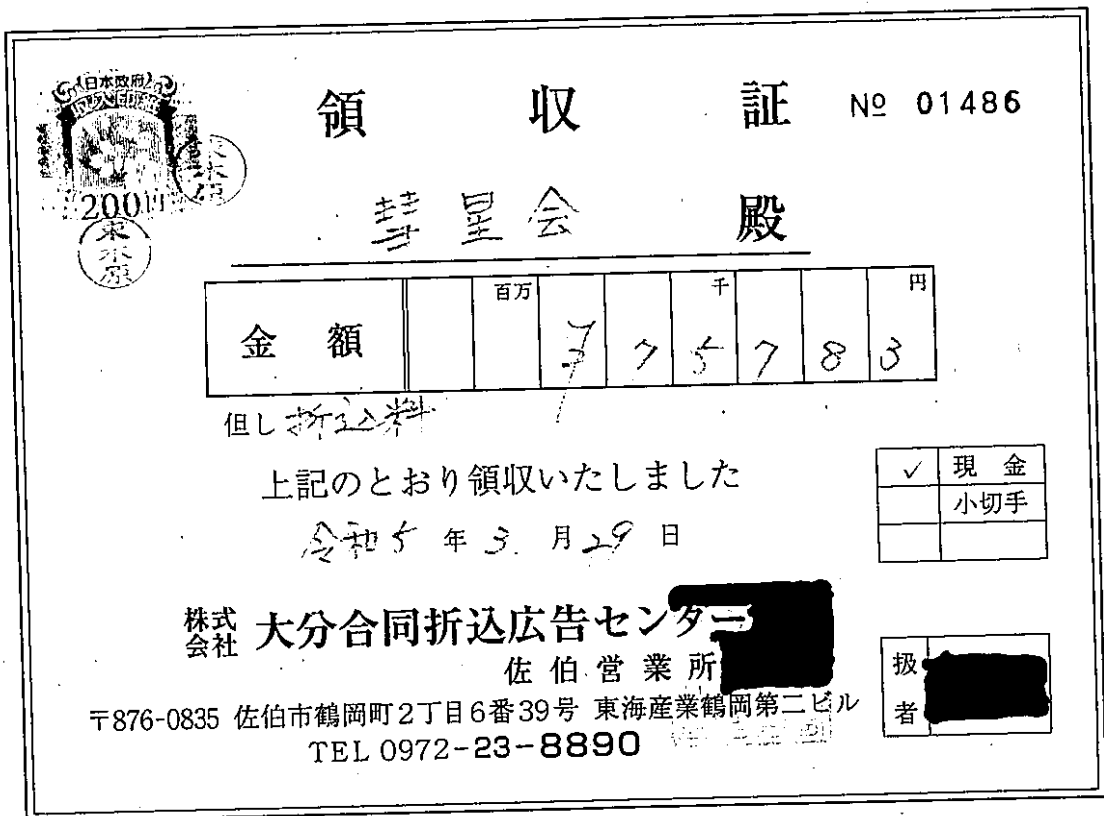 日本政府
収入印紙
200円
領収証 № 01486
彗星会 殿
百万 千 円
金額 ¥ 7 5 7 8 3
但し 折込料
上記のとおり領収いたしました
✓ 現金
小切手
令和5年3月29日
株式会社 大分合同折込広告センター
佐伯営業所
扱者
〒876-0835 佐伯市鶴岡町2丁目6番39号 東海産業鶴岡第二ビル
TEL 0972-23-8890